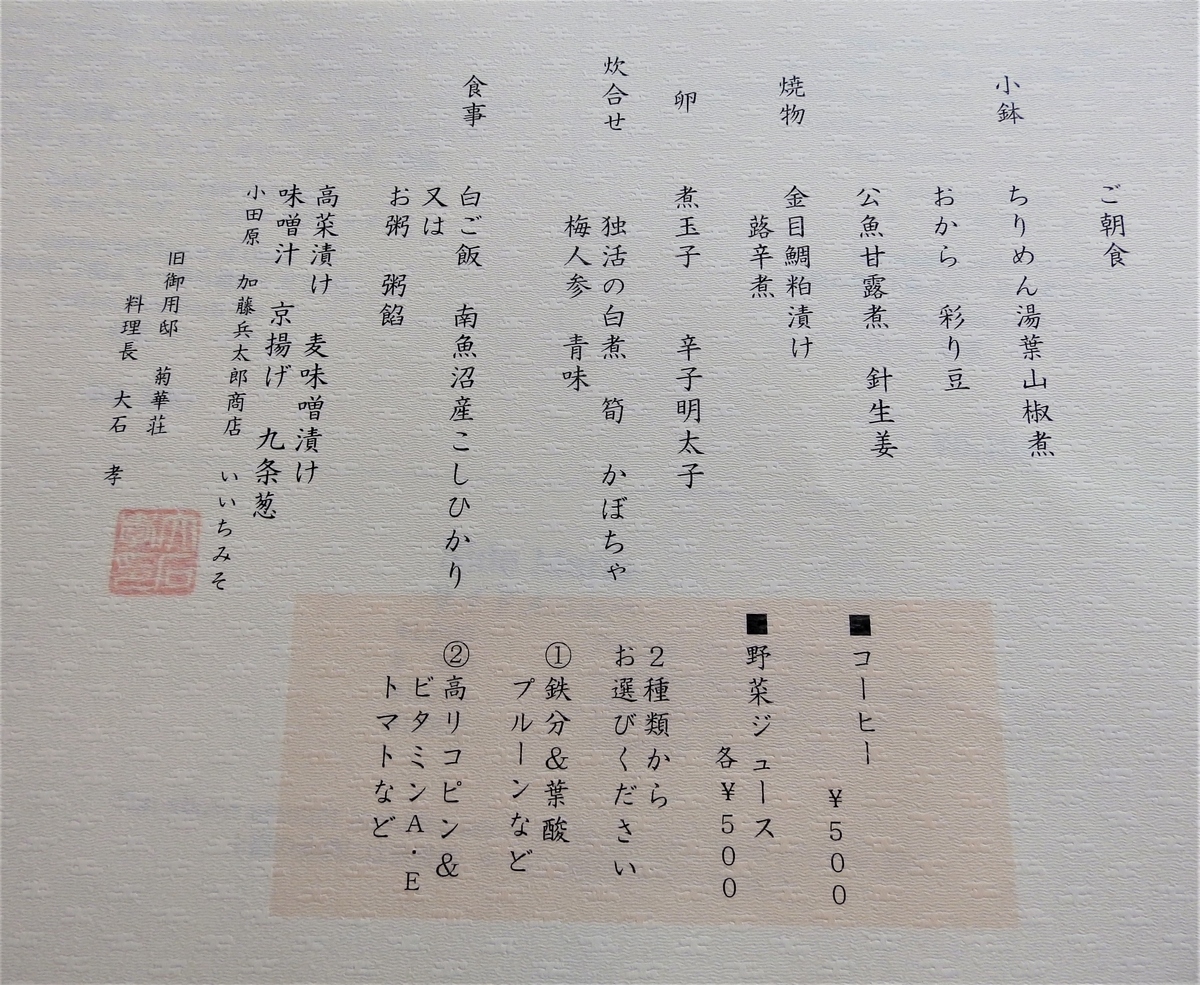 ご朝食
小鉢　ちりめん湯葉山椒煮
おから　彩り豆
公魚甘露煮　針生姜
焼物　金目鯛粕漬け
蕗辛煮
卵　煮玉子　辛子明太子
炊合せ　独活の白煮　筍　かぼちゃ
梅人参　青味
食事　白ご飯　南魚沼産こしひかり
又は
お粥　粥餡
高菜漬け　麦味噌漬け
味噌汁　京揚げ　九条葱
小田原　加藤兵太郎商店　いいちみそ
旧御用邸　菊華荘
料理長　大石　孝
■コーヒー
￥500
■野菜ジュース
各￥500
2種類から
お選びください
①鉄分＆葉酸
プルーンなど
②高リコピン＆
ビタミンA・E
トマトなど